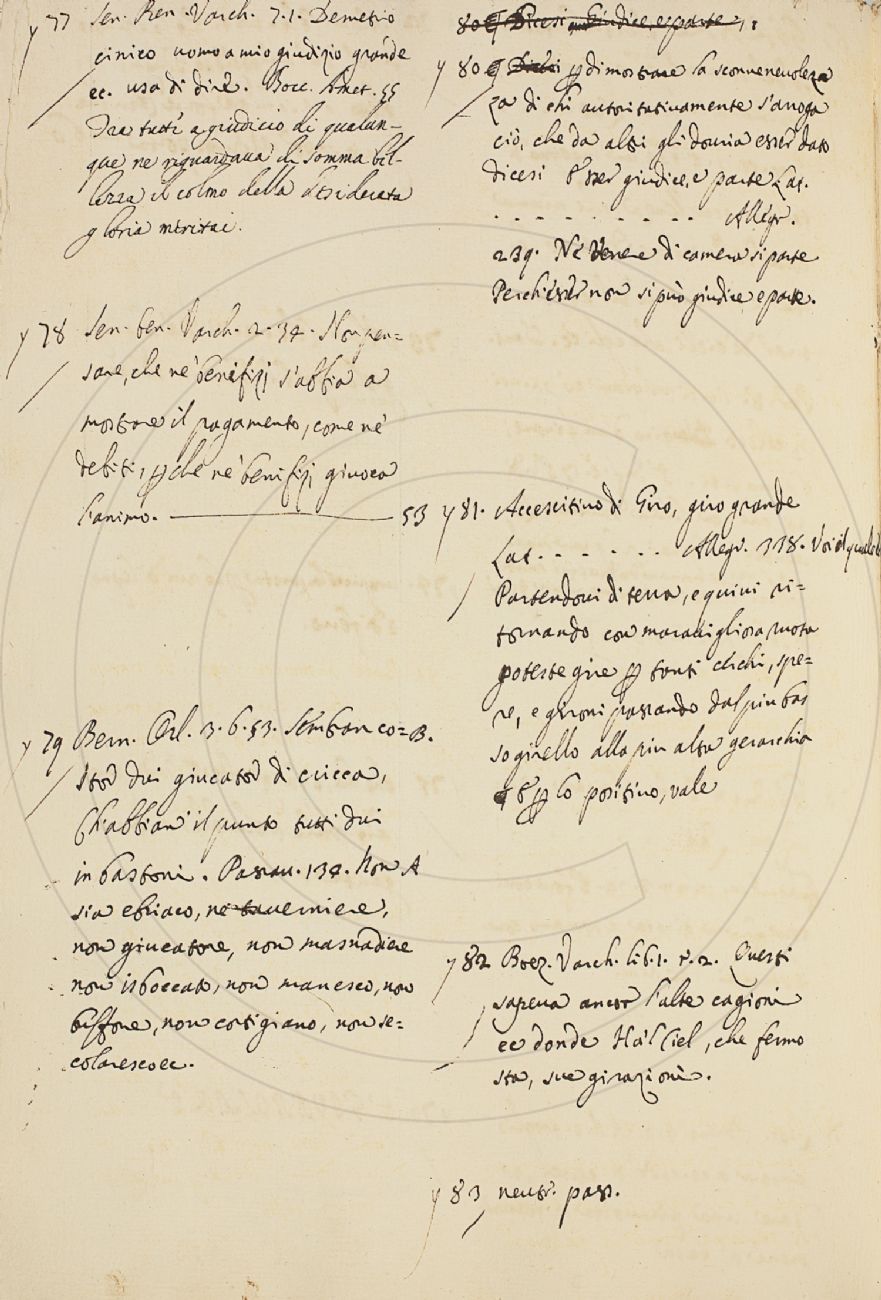 77 Sen. Ben. Varch. 7. 1. Demetrio
cinico uomo a mio giudizio grande
ec. usa di dire. Bocc. Amet. 55
Tra tutti a giudicio di qualun-
que ne riguardava di somma bel-
lezza il colmo della desiderata
gloria meritai.
78 Sen. ben. Varch. 2. 34. Non pen=
sare, che ne' benefizj s'abbia a
mostrare il pagamento, come ne'
debiti, pche ne' benifizj giuoca
l'animo. 53
79 Bern. Orl. 3. 6. 53. Sembran co= B.
stor dui giucator di cricca,
Ch'abbian' il punto tutti dui
in bastoni. Passav. 134. Non A
sia ebriaco, nè taverniere,
non giucatore, non masnadiere
non isboccato, non manesco, non
buffone, non cortigiano, non se=
colaresco ec.
80 § Dicesi Giudice, e parte,
80 § p dimostrare la sconvenevolezza
za di chi autoritativamente s'arroga
ciò, che da altri gli dovria esser dato
dicesi Esser giudice, e parte Lat.
. . . . . . . . . . Allegr.
239. Nè Venere di camera si parte
Perch'esser non si può giudice e parte.
y 81. Accrescitivo di Giro, giro grande
Lat. - - - - - - Allegr. 338. Voi il quale
Partendovi di terra, e quivi ri=
tornando con maravigliosa ruota
poteste gire p tanti cerchi, spe=
re, e gironi passando dal piu bas
so girello alla piu alta gerarchia
§ E p lo positivo, vale
y 82 Boez. Varch. lib. 1. r. 2. Questi
sapeva ancor l'alte cagioni
ec donde Ha'l Ciel, che fermo
sta, sue girazioni.
y 83 neutr. pass.